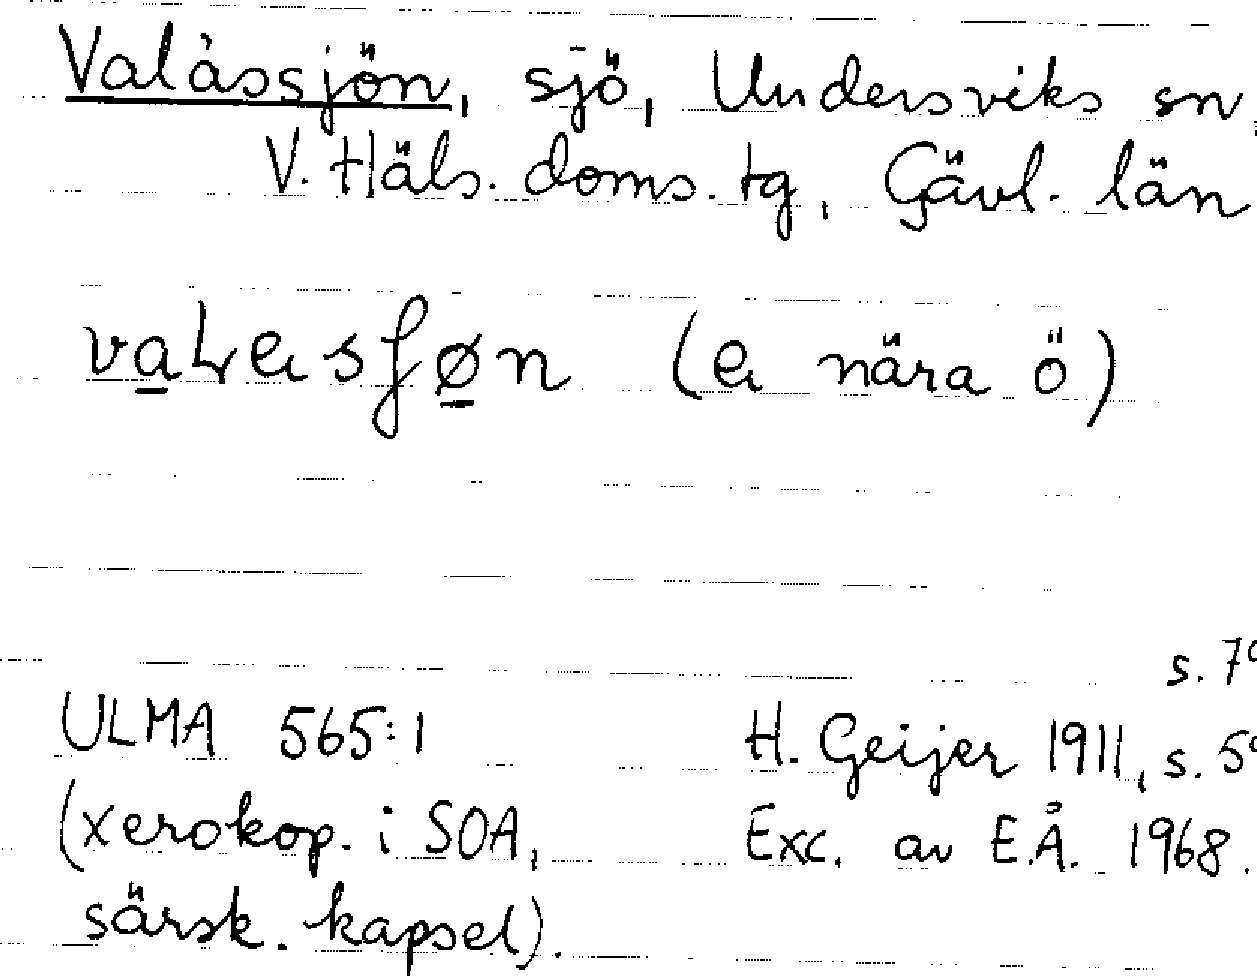 Valåssjön, sjö, Undersviks sn,
V. Häls. doms. tg, Gävl. län
(a nära ö)
s. 7
ULMA 565:1 H. Geijer 1911, s. 5
(xerokop. i SOA, Exc. av E.Å. 1968.
särsk. kapsel).